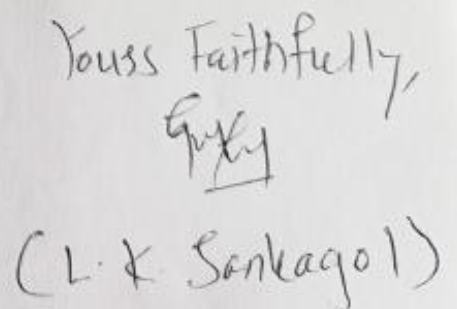 Youss Faithfully,
(L. K Sankagol)